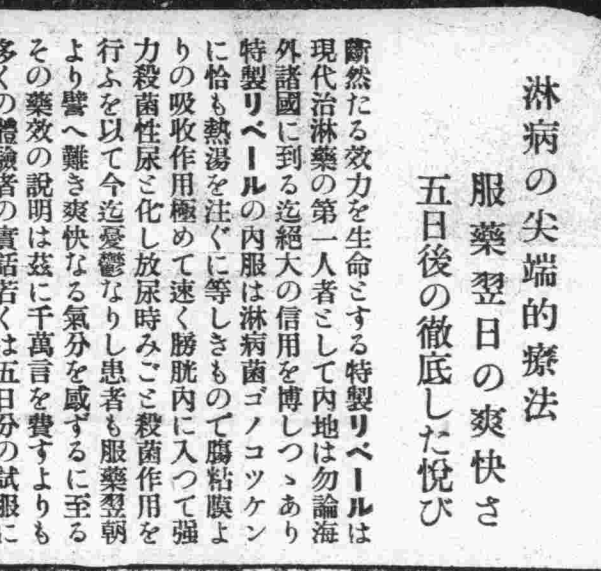 淋病の尖端的療法
服藥翌日の爽快さ
五日後の徹底した悅び
斷然たる效力を生命とする特製リベールは
現代治淋藥の第一人者として內地は勿論海
外諸國に到る迄絕大の信用を博しつゝあり
特製リベールの內服は淋病菌ゴノコツケン
に恰も熱湯を注ぐに等しきもので腸粘膜よ
りの吸收作用極めて速く膀胱內に入つて强
力殺菌性尿と化し放尿時みごと殺菌作用を
行ふを以て今迄憂鬱なりし患者も服藥翌朝
より譬へ難き爽快なる氣分を感ずるに至る
その藥效の說明は茲に千萬言を費すよりも
多くの體驗者の實話若くは五日分の試服に